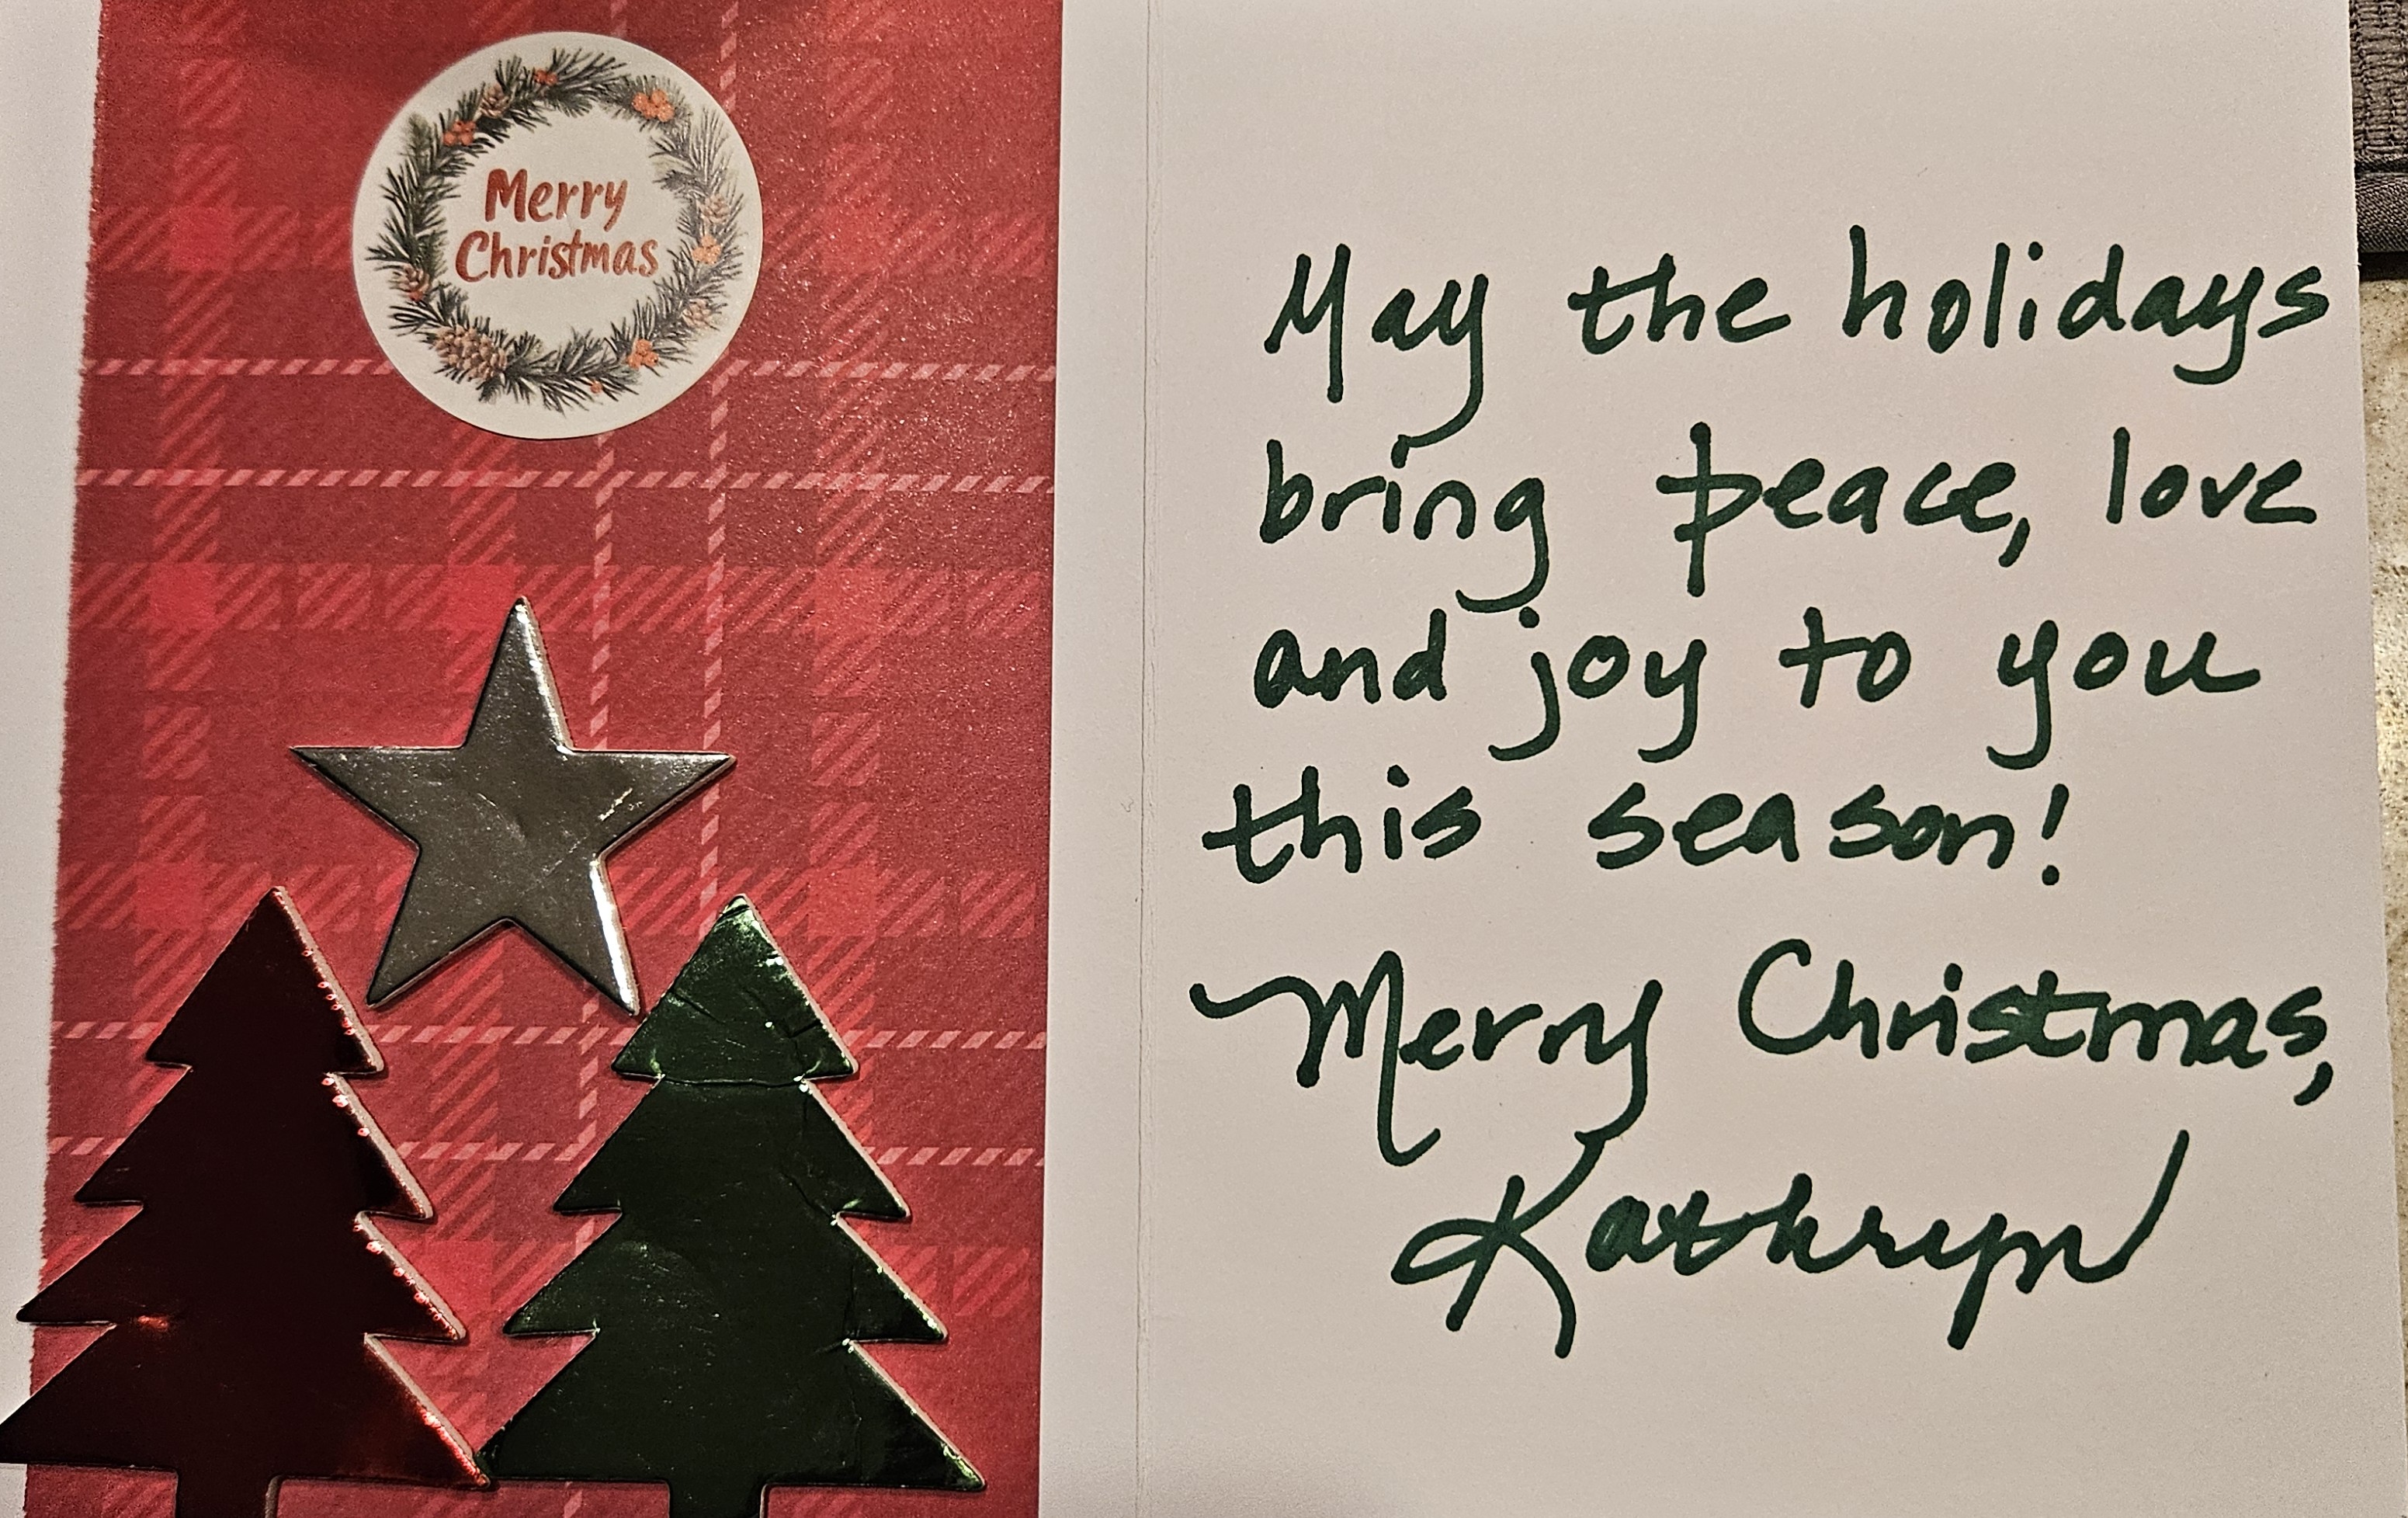 Merry
Christmas
May the holidays
bring peace, love
and joy to you
this season!
Merry Christmas,
Kathryn